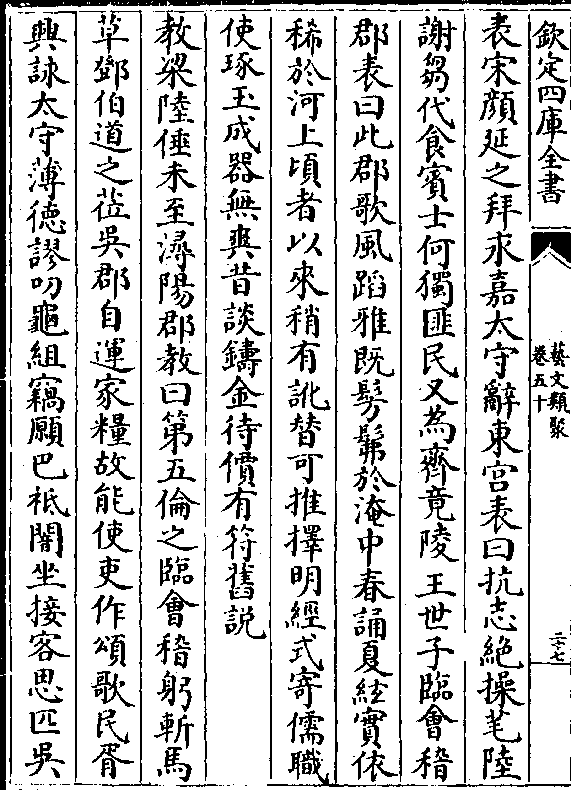 欽定四庫全書
藝文類聚
卷五十
二十七
表宋顔延之拜永嘉太守辭東宫表曰抗志絶操芼陸
謝芻代食賓士何獨匪民又為齊竟陵王世子臨會稽
郡表曰此郡歌風蹈雅既髣髴於淹中春誦夏絃實依
稀於河上頃者以來稍有訛替可推擇明經式寄儒職
使琢玉成器無爽昔談鑄金待價有符舊説
教梁陸倕未至潯陽郡教曰第五倫之臨會稽躬斬馬
草鄧伯道之莅吳郡自運家糧故能使吏作頌歌民胥
興詠太守薄徳謬叨龜組竊願巴祗闇坐接客思匹吳